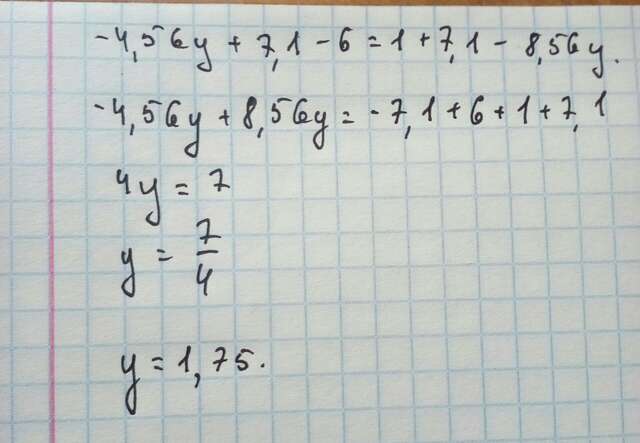 -4,56y + 7,1 - 6 = 1 + 7,1 - 8,56y.
-4,56y + 8,56y = -7,1 + 6 + 1 + 7,1
4y = 7
y = 7/4
y = 1,75.